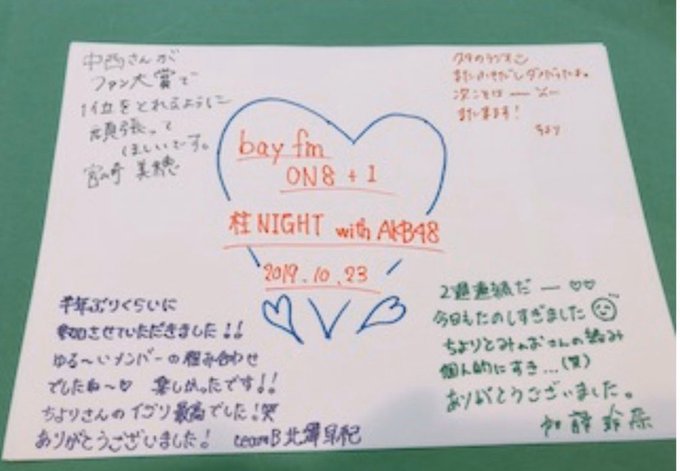 中西さんが
ファン大賞で
1位をとれるように
頑張って
ほしいです。
宮崎 美穂
またかせだしダメだったよ。
次こそは ー
また来ます!
ちより
bay fm
ON8 + 1
柱NIGHT with AKB48
2019.10.23
半年ぶりくらいに
参加させていただきました!!
ゆる〜いメンバーの組み合わせ
でしたね〜♡ 楽しかったです!!
ちよりさんのイゴリ最高でした!笑
ありがとうございました! teamB 北澤早紀
2週連続だ ー ♡♡
今日もたのしすぎました
ちよりとみゃおさんの絡み
個人的にすき...(笑)
ありがとうございました。
加藤 玲奈